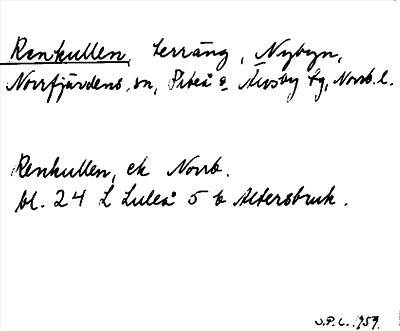 Renkullen, terräng, Nybyn,
Norrfjärdens sn, Piteå o Älvsby tg, Norrb. l.
Renkullen, ek Norrb.
bl. 24 L Luleå 5 b Altersbruk.
J.P.L. 1959.